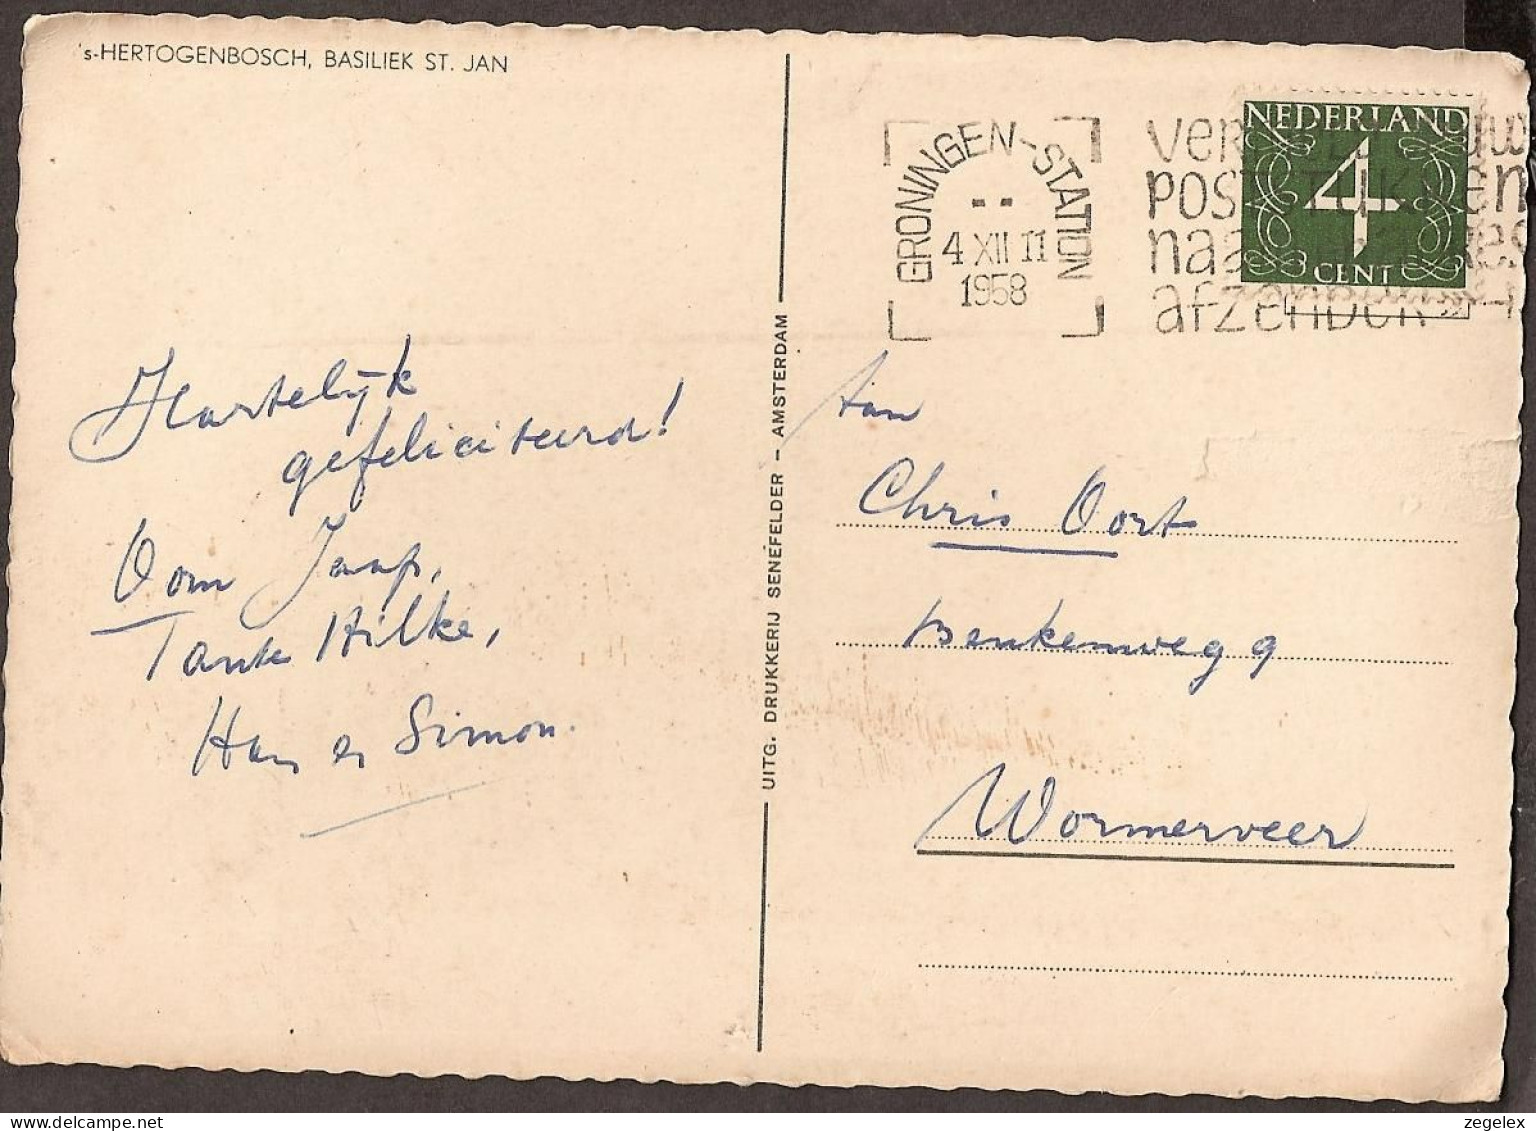 's-HERTOGENBOSCH, BASILIEK ST. JAN
Hartelijk
gefeliciteerd!
Oom Jaap,
Tante Hilke,
Han en Simon.
UITG. DRUKKERIJ SENEFELDER - AMSTERDAM
GRONINGEN-STATION
4 XII 11
1958
POST
afzender
NEDERLAND
4
CENT
Aan
Chris Oort
Benkemweg 9
Wormerveer
zegelex